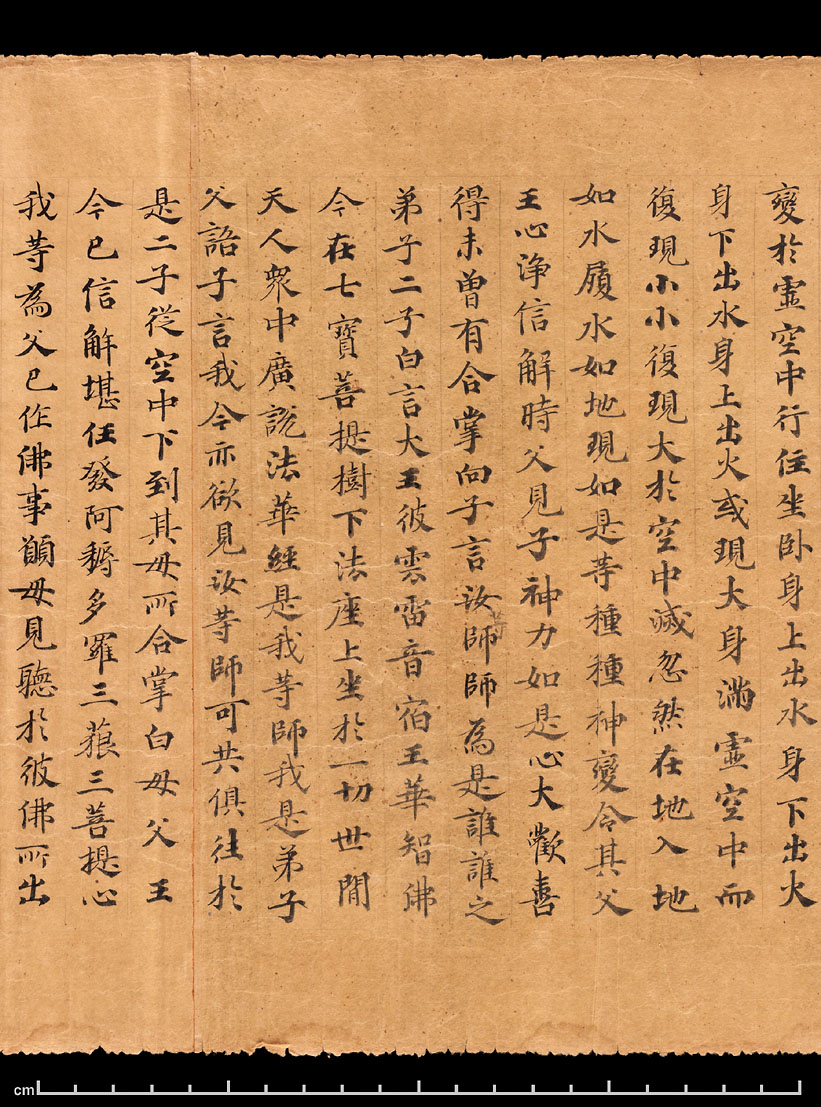 變於虛空中行住坐臥身上出水身下出火
身下出水身上出火或現大身滿虛空中而
復現小小復現大於空中滅忽然在地入地
如水履水如地現如是等種種神變令其父
王心淨信解時父見子神力如是心大歡喜
得未曾有合掌向子言汝等師師為是誰誰之
弟子二子白言大王彼雲雷音宿王華智佛
今在七寶菩提樹下法座上坐於一切世閒
天人眾中廣說法華經是我等師我是弟子
父語子言我今亦欲見汝等師可共俱往於
是二子從空中下到其母所合掌白母父王
今已信解堪任發阿耨多羅三藐三菩提心
我等為父已作佛事願母見聽於彼佛所出
cm